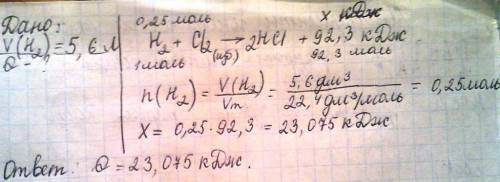 Дано:
V(H₂)=5,6 л
Q -
0,25 моль x кДж
H₂ + Cl₂ → 2HCl + 92,3 кДж
1 моль (изб) 92,3 моль
n(H₂) = V(H₂)/Vm = 5,6 дм³/22,4 дм³/моль = 0,25 моль
X = 0,25 · 92,3 = 23,075 кДж
Ответ: Q = 23,075 кДж.